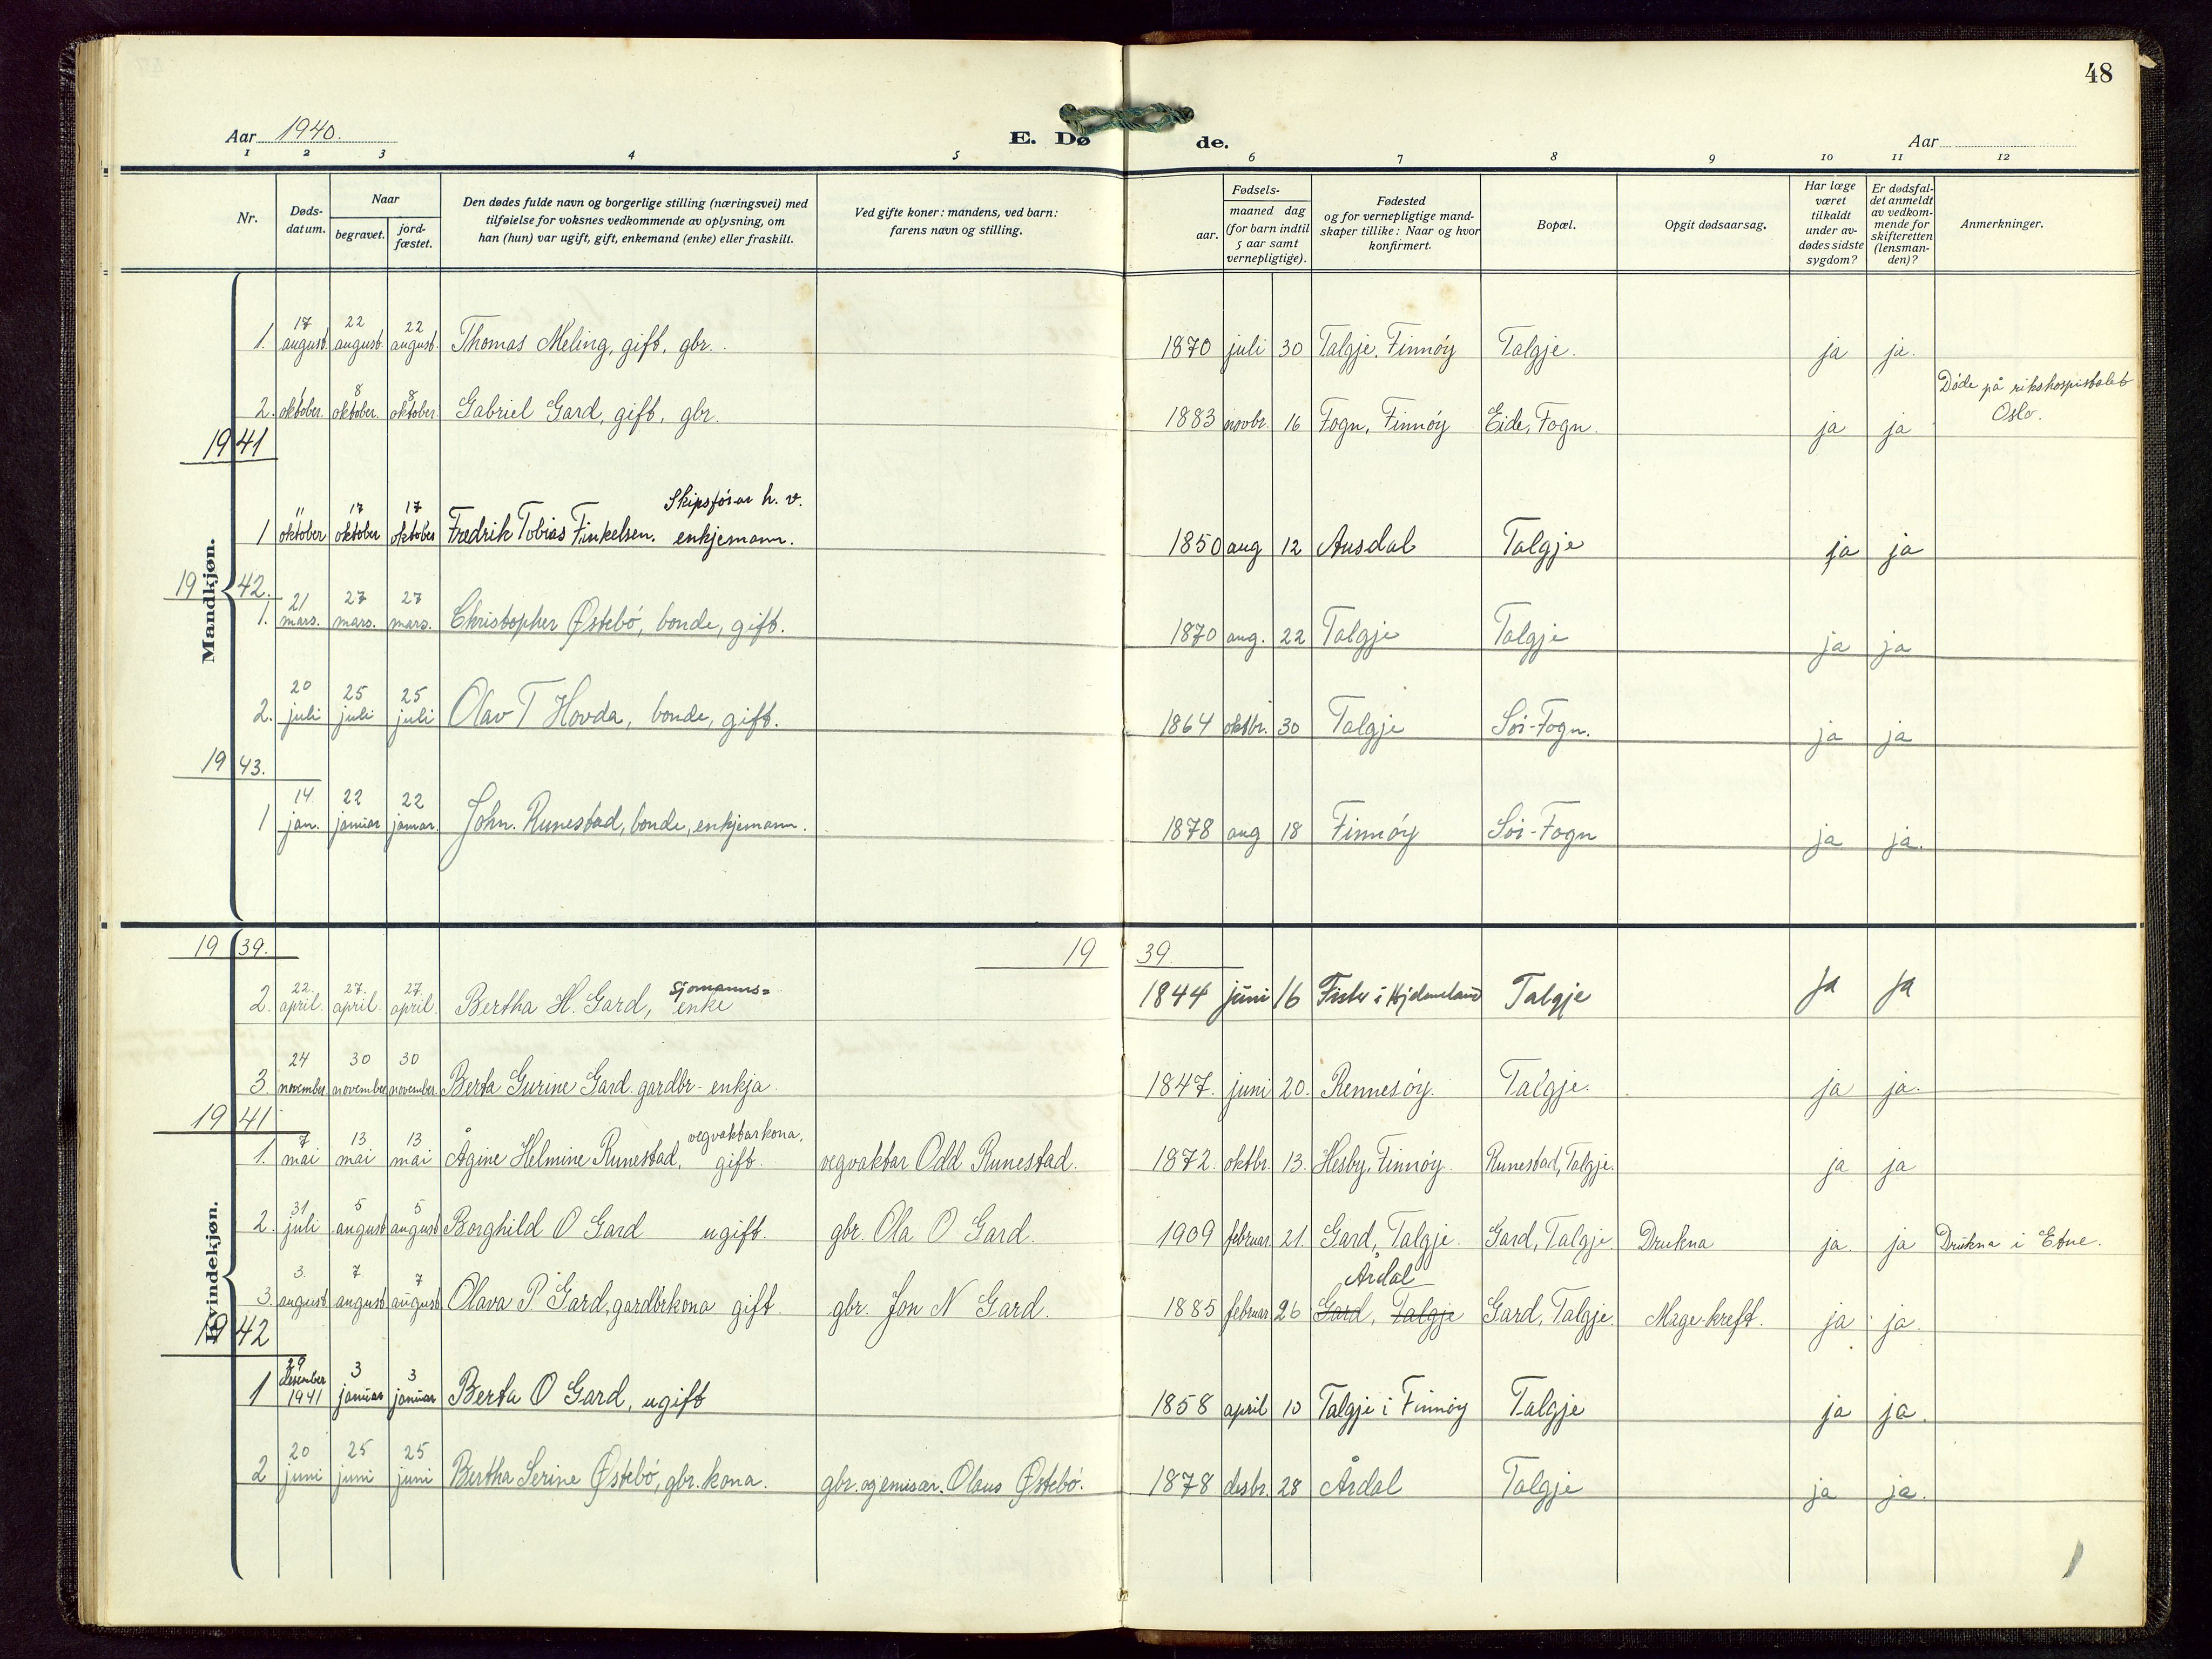 48
Aar 1940.
E. Dø de.
Aar
1 2 3 4 5 6 7 8 9 10 11 12
Nr.
Døds-
datum.
Naar
begravet.
jord-
fæstet.
Den dødes fulde navn og borgerlige stilling (næringsvei) med
tilføielse for voksnes vedkommende av oplysning, om
han (hun) var ugift, gift, enkemand (enke) eller fraskilt.
Ved gifte koner: mandens, ved barn:
farens navn og stilling.
Fødsels-
aar.
maaned dag
(for barn indtil
5 aar samt
vernepligtige).
Fødested
og for vernepligtige mand-
skaper tillike: Naar og hvor
konfirmert.
Bopæl.
Opgit dødsaarsag.
Har læge
været
tilkaldt
under av-
dødes sidste
sygdom?
Er dødsfal-
det anmeldt
av vedkom-
mende for
skifteretten
(lensman-
den)?
Anmerkninger.
Mandkjøn.
1. 17 august. 22 august. 22 august. Thomas Meling, gift, gbr. 1870 juli 30 Talgje, Finnøy Talgje. ja ja.
2. oktober. 8 oktober. 8 oktober. Gabriel Gard, gift, gbr. 1883 novbr. 16 Fogn, Finnøy Eide, Fogn. ja ja Døde på rikshospitalet
Oslo.
1941
Skipsførar h. v.
1 11 oktober 17 oktober 17 oktober Fredrik Tobias Finkelsen. enkjemann. 1850 aug 12 Ausdal Talgje ja ja
1942.
1. 21 mars. 27 mars. 27 mars. Christopher Østebø, bonde, gift. 1870 aug. 22 Talgje Talgje ja ja
2. 20 juli 25 juli 25 juli Olav T Hovda, bonde, gift. 1864 oktbr. 30 Talgje Sør-Fogn. ja ja
1943.
1 14 jan. 22 januar 22 januar. John. Runestad, bonde, enkjemann. 1878 aug 18 Finnøy Sør-Fogn ja ja.
Kvindekjøn.
1939. 1939.
sjømanns=
2. 22. april. 27. april. 27. april. Bertha H. Gard, enke 1844 juni 16 Fister i Hjelmeland Talgje ja ja
3. 24 november 30 november 30 november. Berta Gurine Gard. gardbr- enkja. 1847. juni 20. Rennesøy. Talgje. ja ja.
1941
vegvaktarkona,
1. 7 mai 13 mai 13 mai Ågine Helmine Runestad, gift. vegvaktar Odd Runestad. 1872. oktbr. 13. Hesby, Finnøy. Runestad, Talgje. ja ja
2. 31 juli 5 august 5 august Borghild O Gard ugift. gbr. Ola O Gard. 1909 februar 21. Gard, Talgje. Gard, Talgje. Drukna ja. ja Drukna i Etne.
Årdal
3. 3. august 7 august 7 august Olava P Gard, gardbrkona gift. gbr. Jon N Gard. 1885 februar 26 Gard, Talgje Gard, Talgje. Mage-kreft. ja ja.
1942
1 29 desember 1941 3 januar 3 januar Berta O Gard, ugift 1858 april 10 Talgje i Finnøy Talgje ja ja.
2 20 juni 25 juni 25 juni Bertha Serine Østebø, gbr. kona. gbr. og emisær. Olaus Østebø. 1878 desbr. 28 Årdal Talgje ja ja.